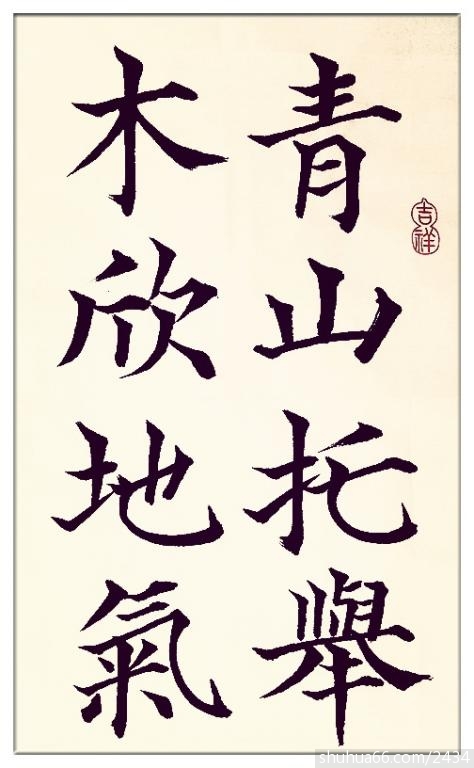 青山托舉
木欣地氣
吉祥
shuhua66.com/2434